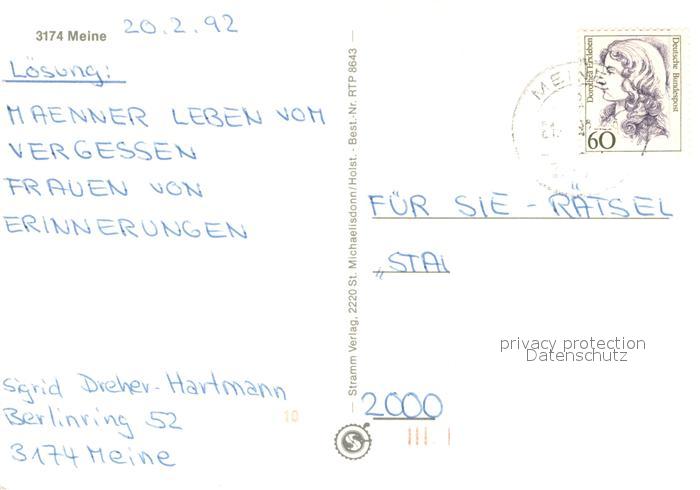 3174 Meine
20.2.92
Lösung:
MAENNER LEBEN VOM
VERGESSEN
FRAUEN VON
ERINNERUNGEN
Sigrid Dreher-Hartmann
Berlinring 52
3174 Meine
10
Stramm Verlag, 2220 St. Michaelisdonn/Holst. - Best.-Nr. RTP 8643
Dorothea Erxleben
Deutsche Bundespost
60
FÜR SIE - RÄTSEL
"STAI
privacy protection
Datenschutz
2000